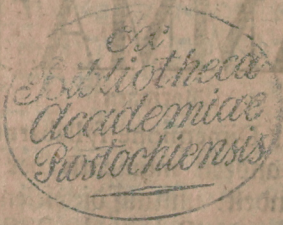 ex
Bibliotheca
Academiae
Rostochiensis